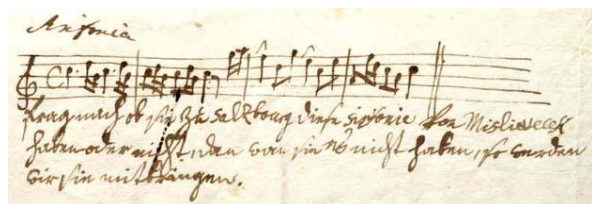 Sinfonia
frag nach ob sie zu Salzbourg diese Sinfonie von Misliwecek
haben oder nicht, dan wan sie es nicht haben, so werden
wir sie mitbringen.